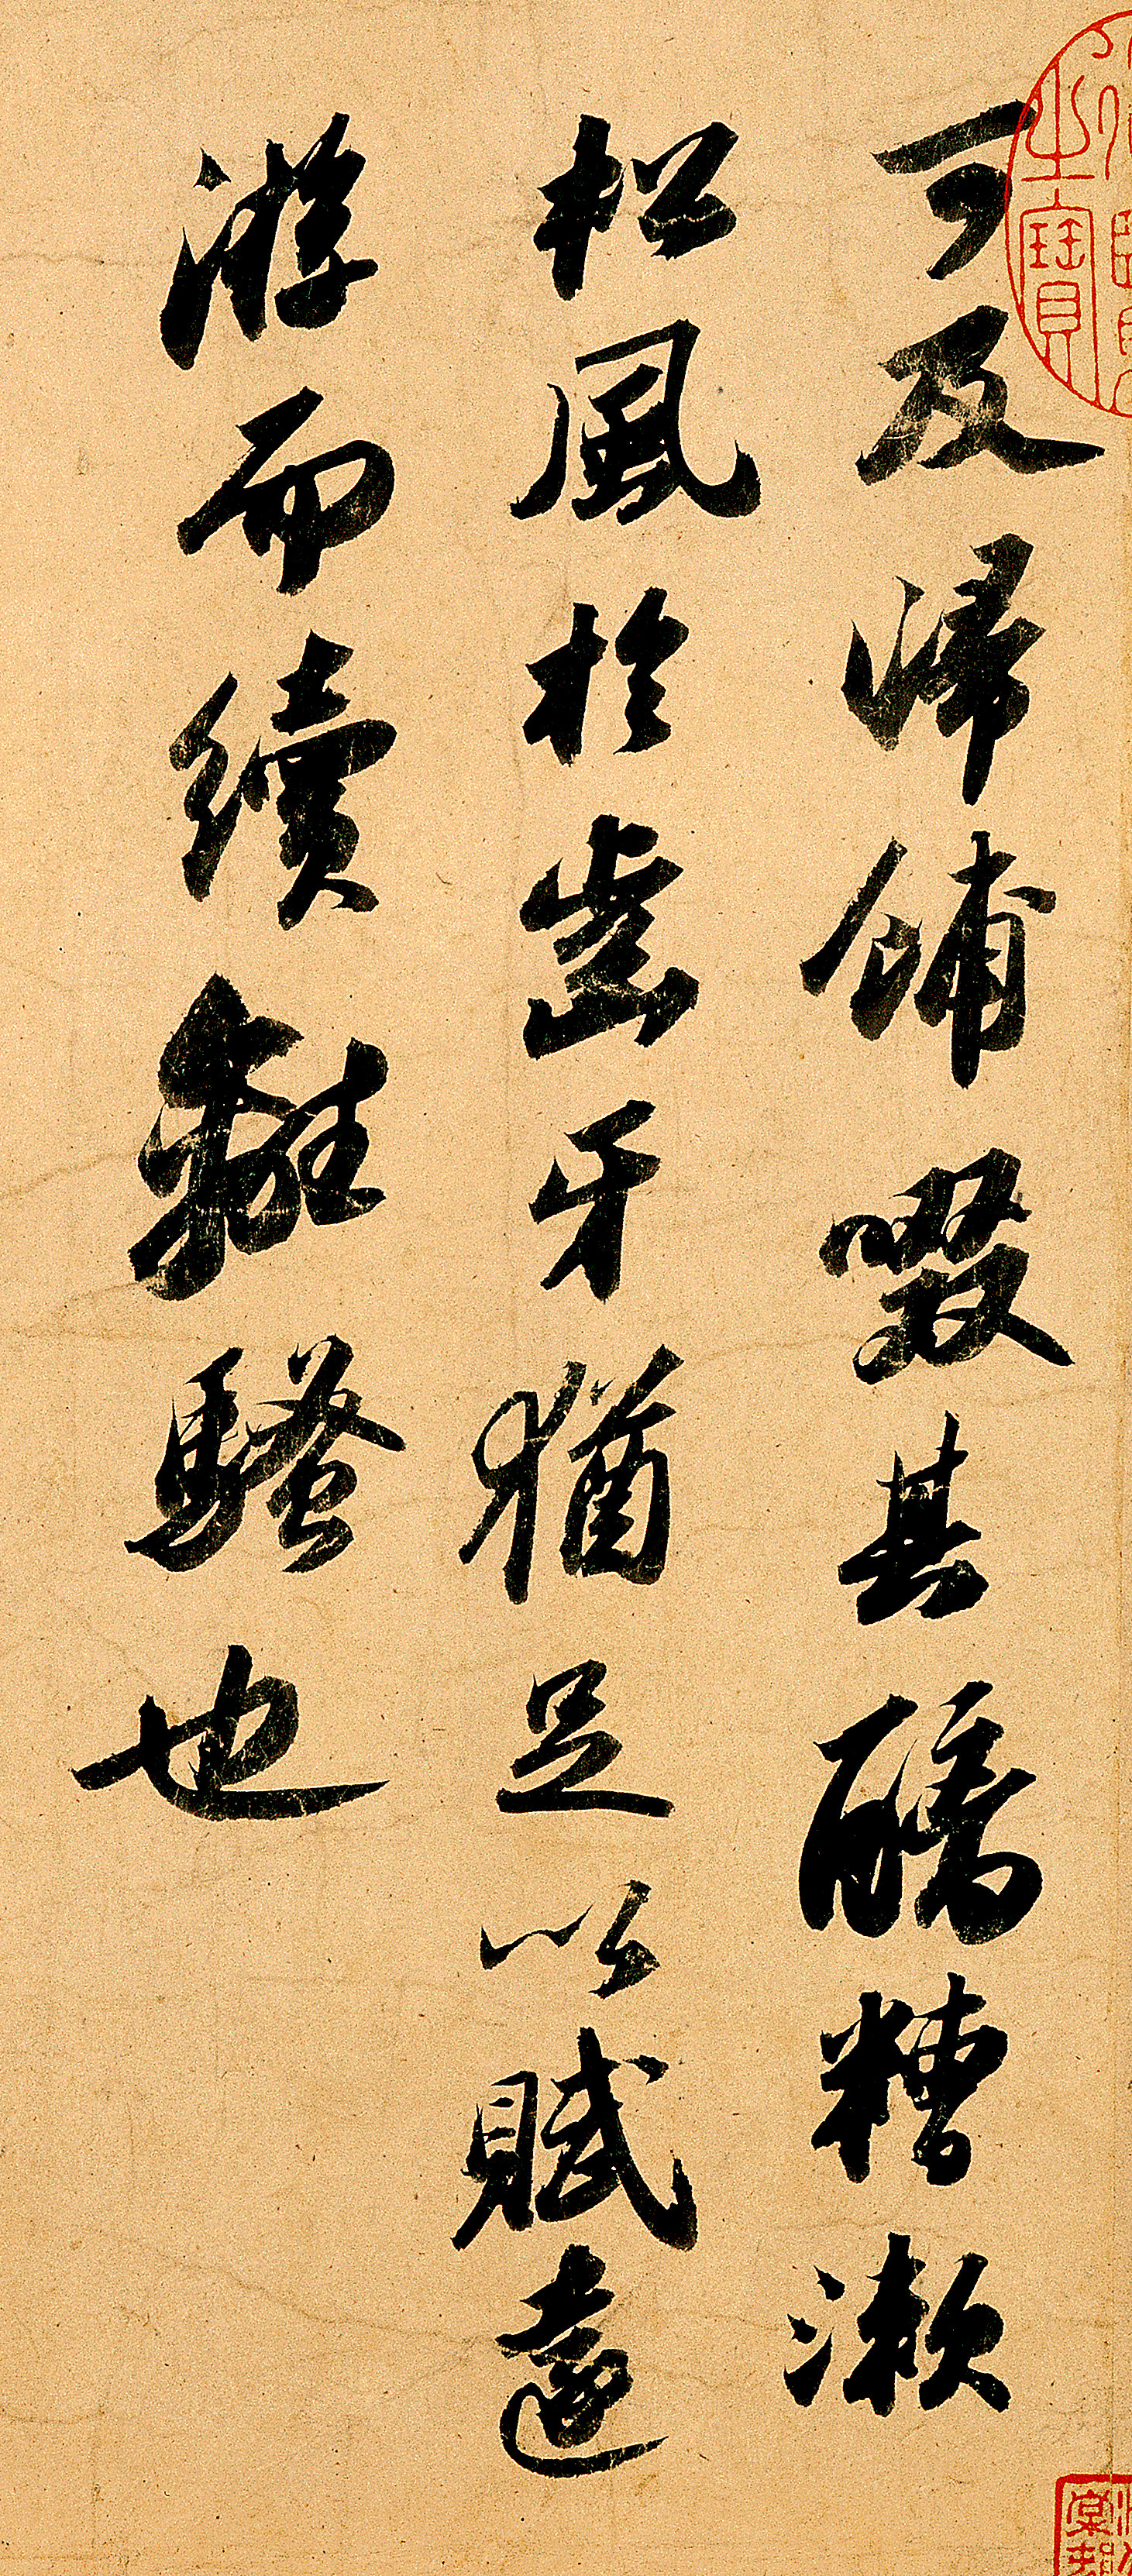 可及歸餔啜其醨糟漱
松風於齒牙猶足以賦遠
游而續離騷也
之寶
棠邨